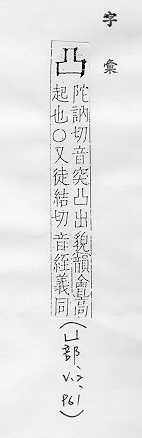 字彙
凸
陀訥切音突凸出貌韻會高
起也○又徒結切音絰義同
(凵部、)